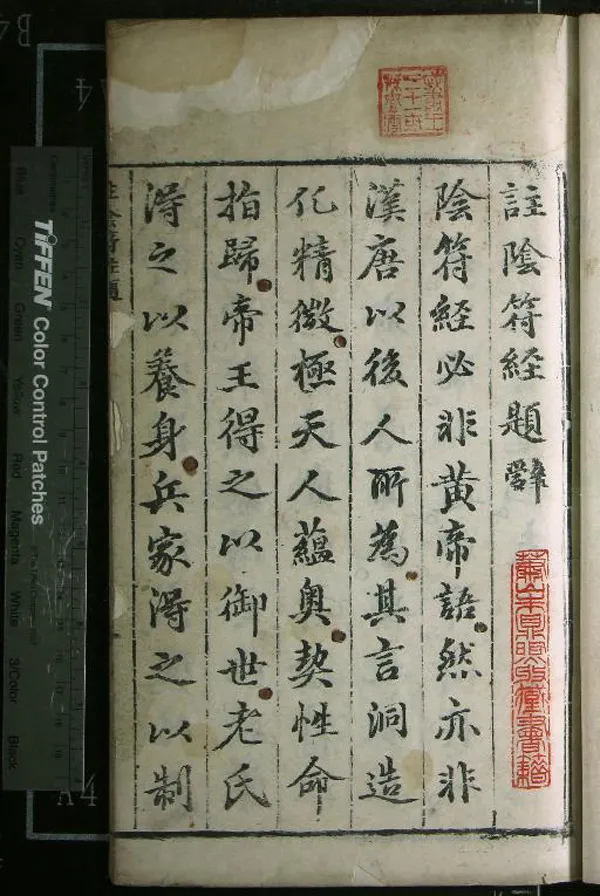 註陰符經題辭
陰符經必非黃帝語然亦非
漢唐以後人所為其言洞造
化精微極天人蘊奧契性命
指歸帝王得之以御世老氏
得之以養身兵家得之以制
陰符
TIFFEN Color Control Patches
Blue
Cyan
Green
Yellow
Red
Magenta
White
3/Color
Black
B4
A4